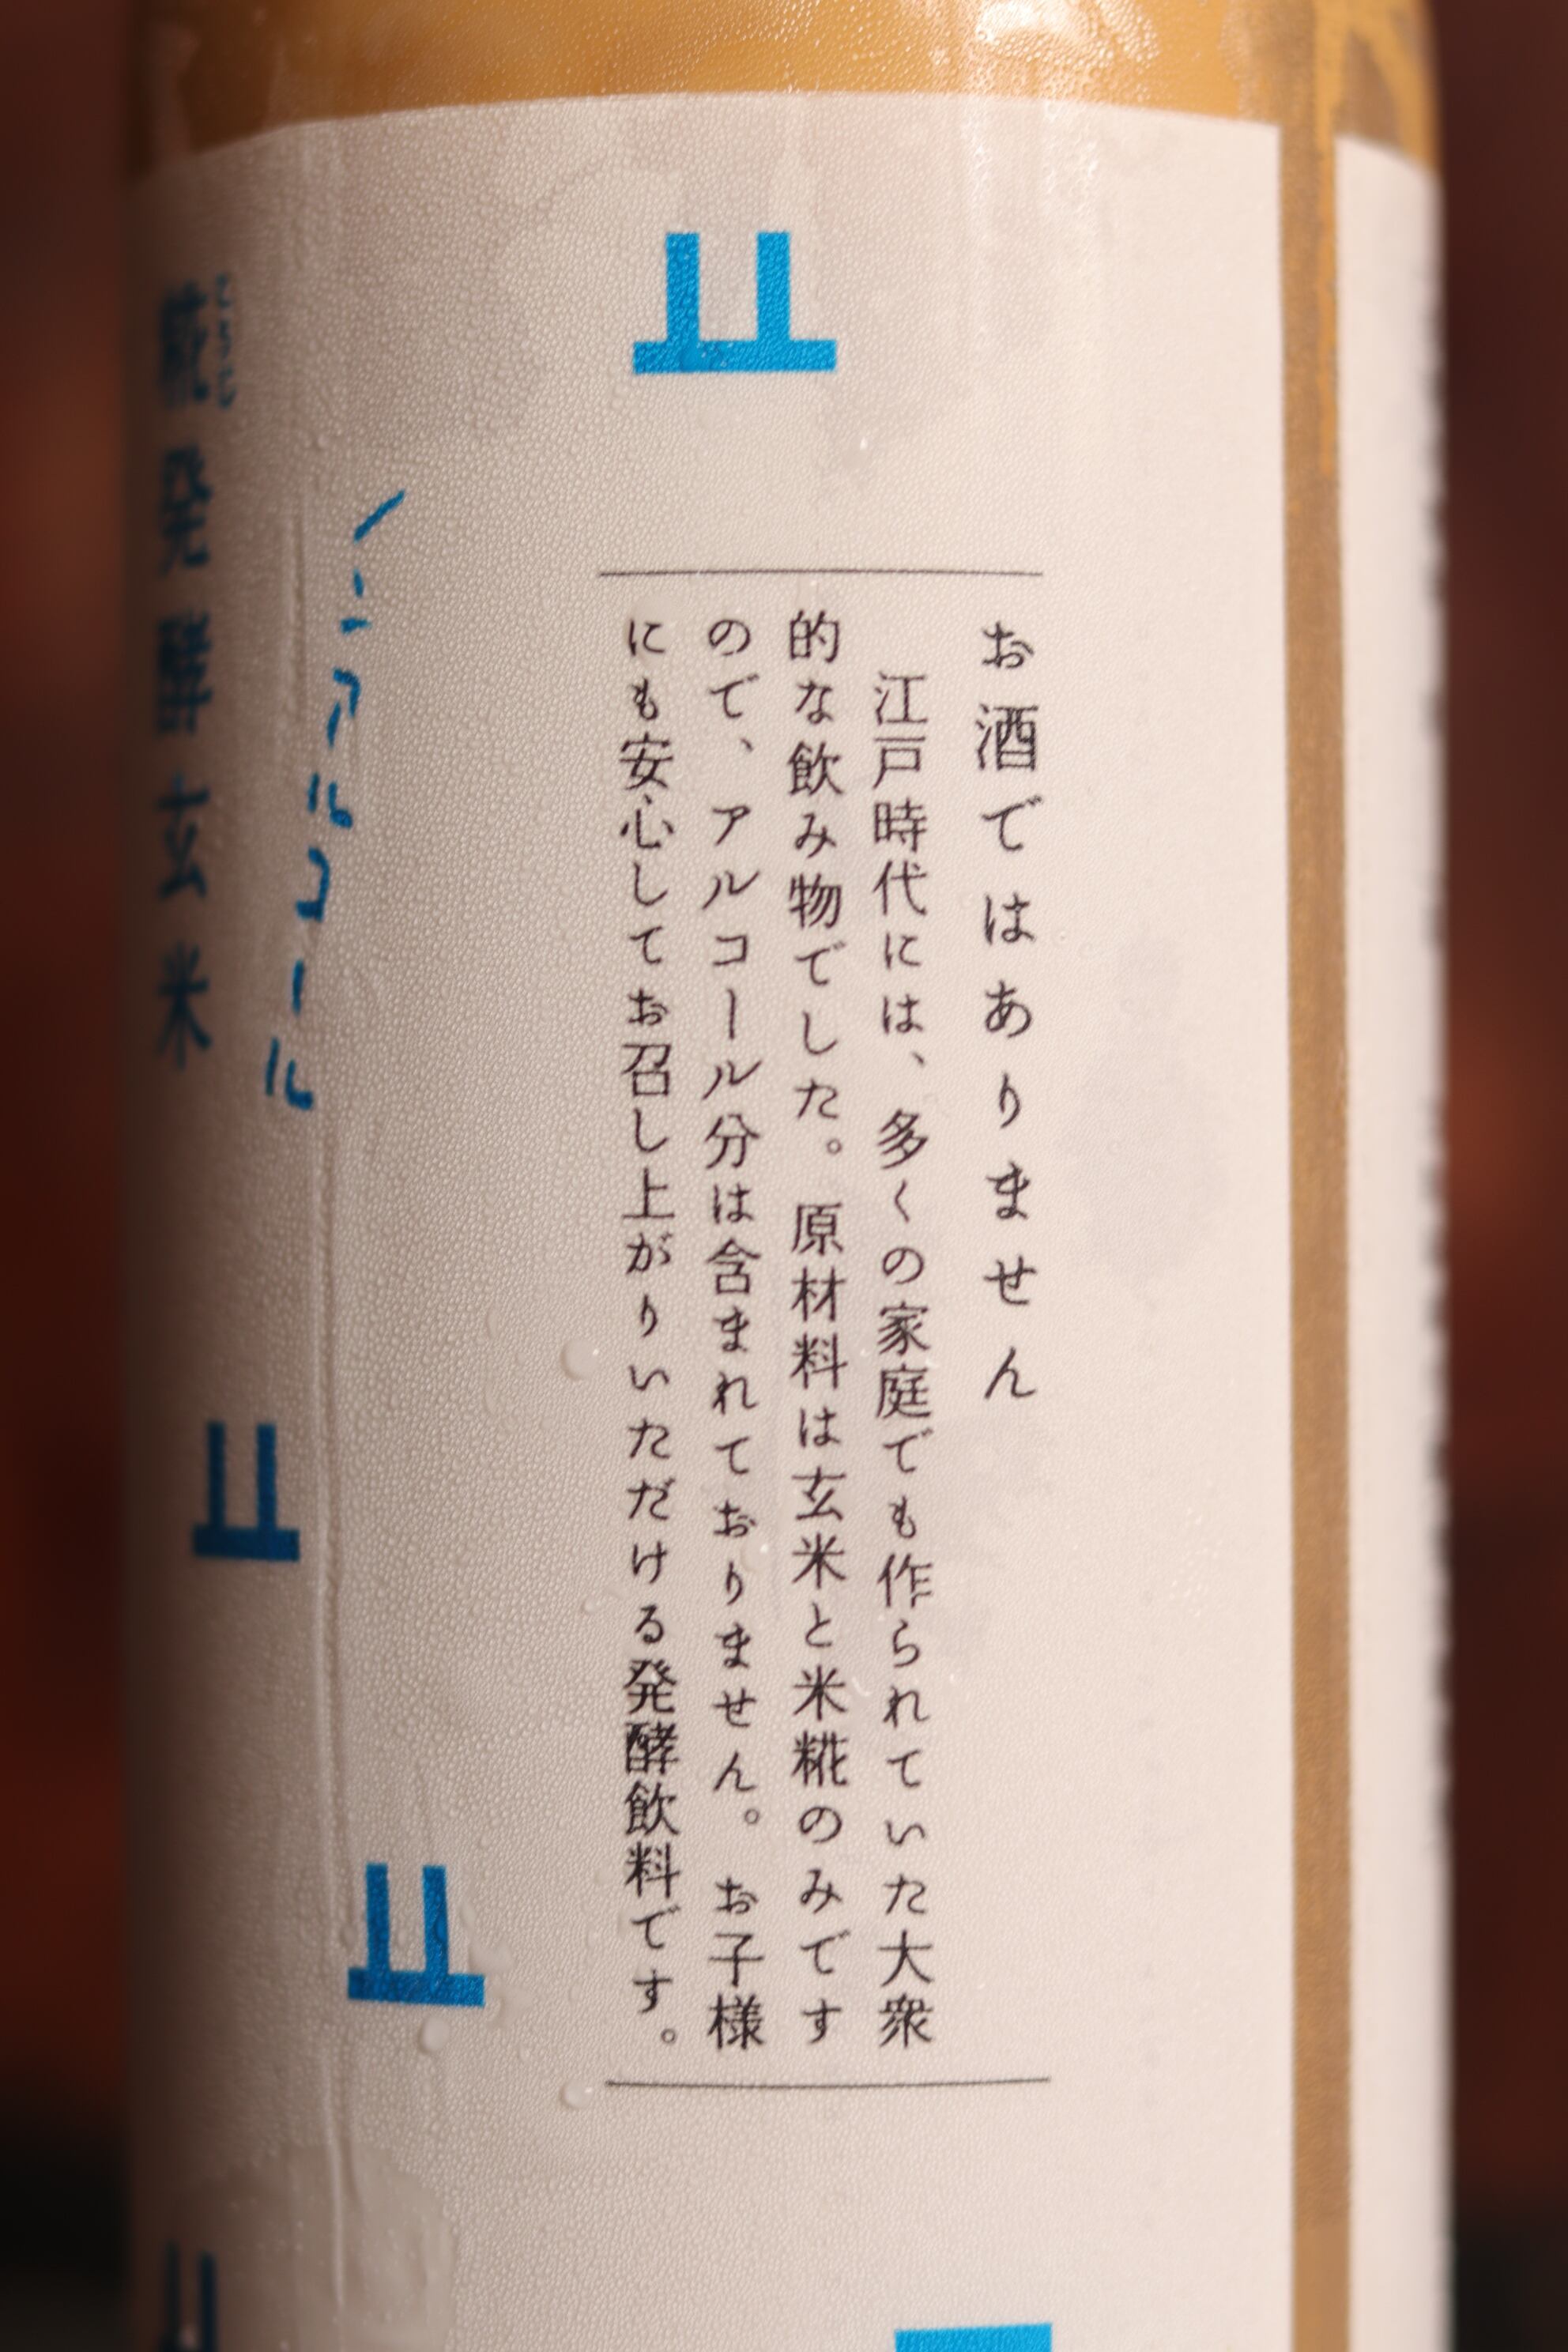 お酒ではありません
江戸時代には、多くの家庭でも作られていた大衆
的な飲み物でした。原材料は玄米と米糀のみです
ので、アルコール分は含まれておりません。お子様
にも安心してお召し上がりいただける発酵飲料です。
ノンアルコール
こうじ
糀発酵玄米